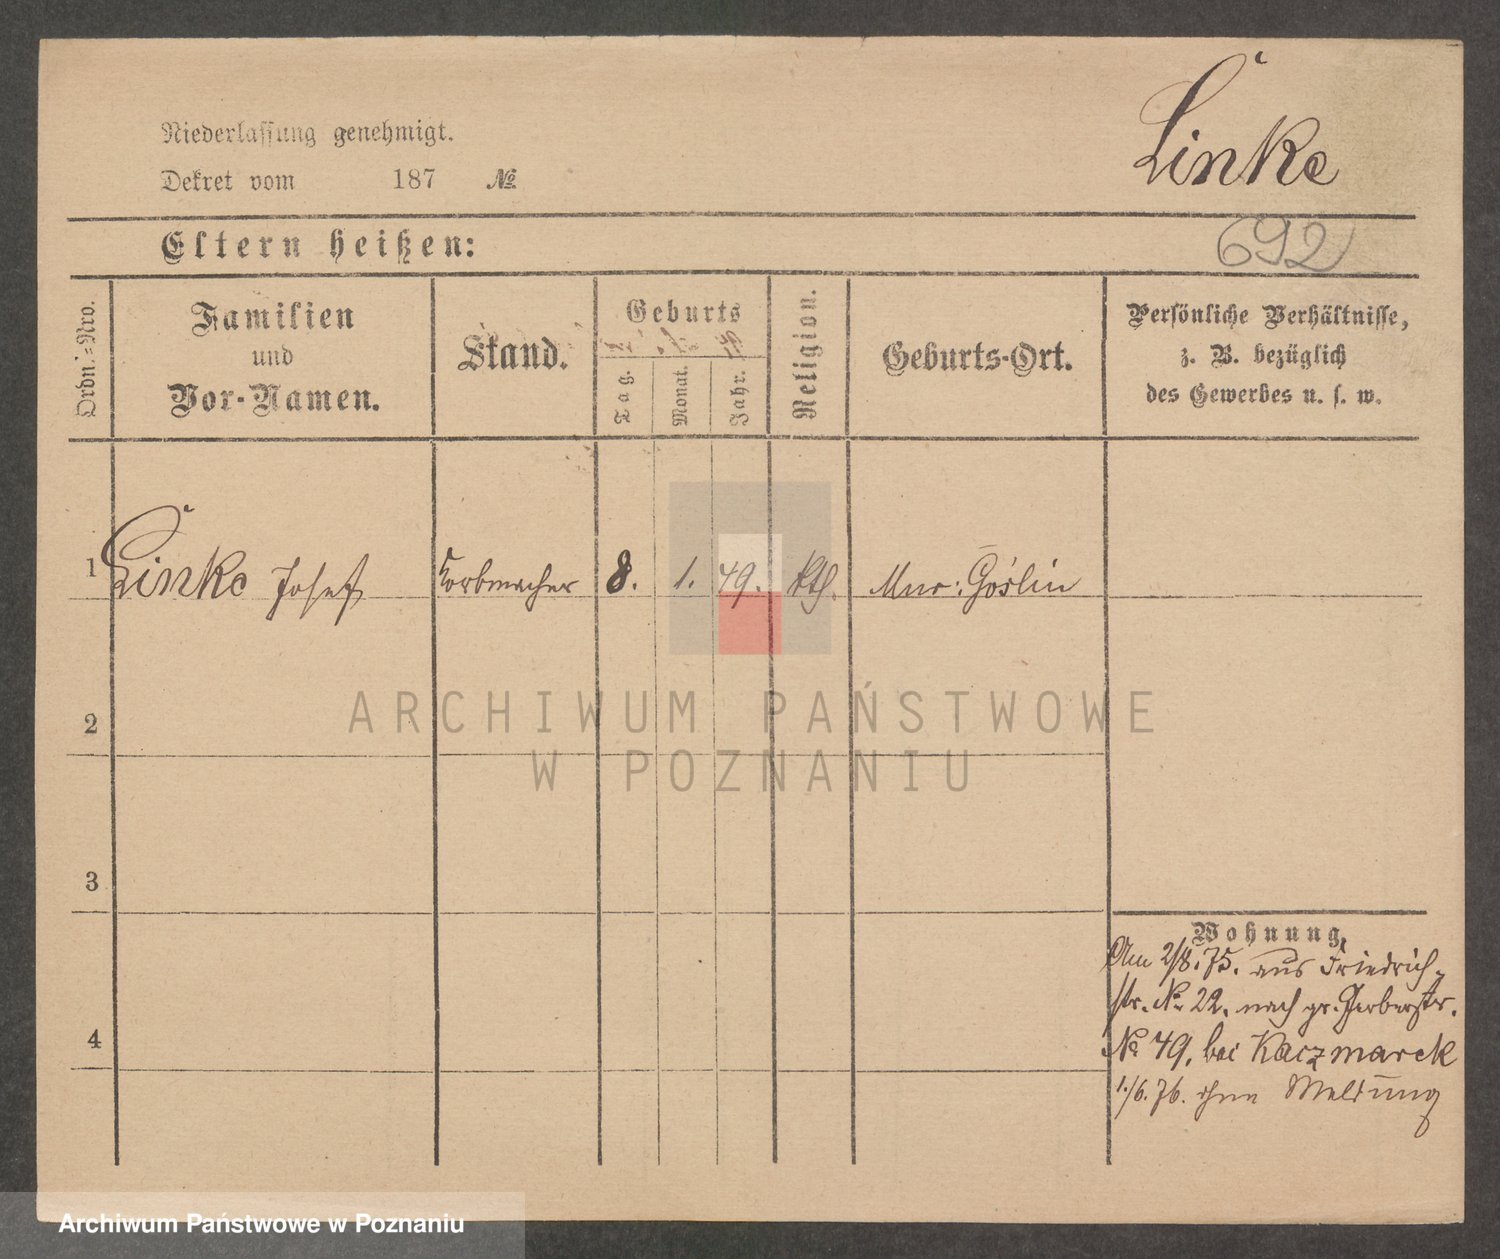 Linke
Niederlassung genehmigt.
Dekret vom 187 №
Eltern heißen:
692
Ordn.=Nro.
Familien
und
Vor-Namen.
Stand.
Geburts
Tag.
Monat.
Jahr.
Religion.
Geburts-Ort.
Persönliche Verhältnisse,
z. B. bezüglich
des Gewerbes u. s. w.
1 Linke Josef Korbmacher 8. 1. 49. kth. Mur: Goślin
2
3
4
Wohnung.
Am 2/8.75. aus Friedrich-
str. No 22. nach gr. Gerberstr.
No 49. bei Kaczmarek
1./6.76. ohne Meldung
ARCHIWUM PAŃSTWOWE
W POZNANIU
Archiwum Państwowe w Poznaniu